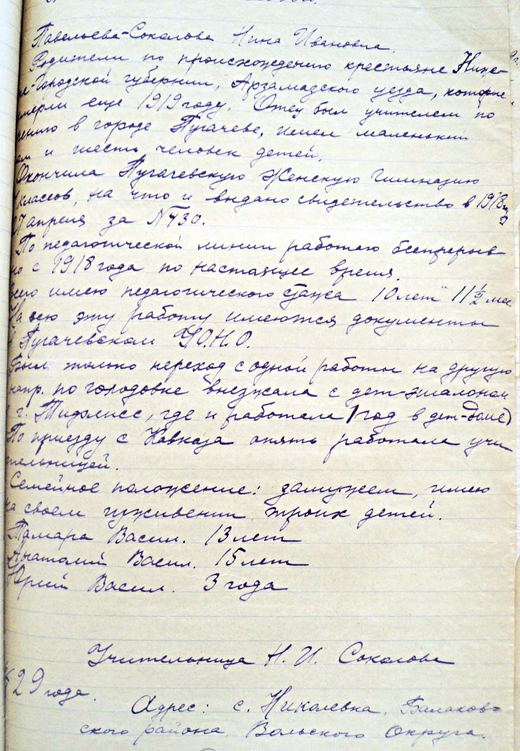 Павельева-Соколова Нина Ивановна.
Родители по происхождению крестьяне Ниже-
Городской губернии, Арзамазского уезда, которые
умерли еще 1919 году. Отец был учителем по
пению в городе Пугачеве, имел маленький
дом и шесть человек детей.
Окончила Пугачевскую Женскую Гимназию
классов, на что и выдано свидетельство в 1918 г
апреля за № 430.
По педагогической линии работаю беспрерыв
но с 1918 года по настоящее время.
Всего имею педагогического стажа 10 лет 11½ мес.
На всю эту работу имеются документы
в Пугачевском У.О.Н.О.
Был только переход с одной работы на другую
напр. по голодовке выезжала с дет-эшалоном
г. Тифлисс, где и работала 1 год в дет-доме)
По приезду с Кавказа опять работала учи
тельницей.
Семейное положение: замужем, имею
на своем иждивении троих детей.
Тамара Васил. 13 лет
Анатолий Васил. 15 лет
Юрий Васил. 3 года
Учительница Н. И. Соколова
29 года.
Адрес: с. Николевка, Балаков-
ского района, Вольского Округа.